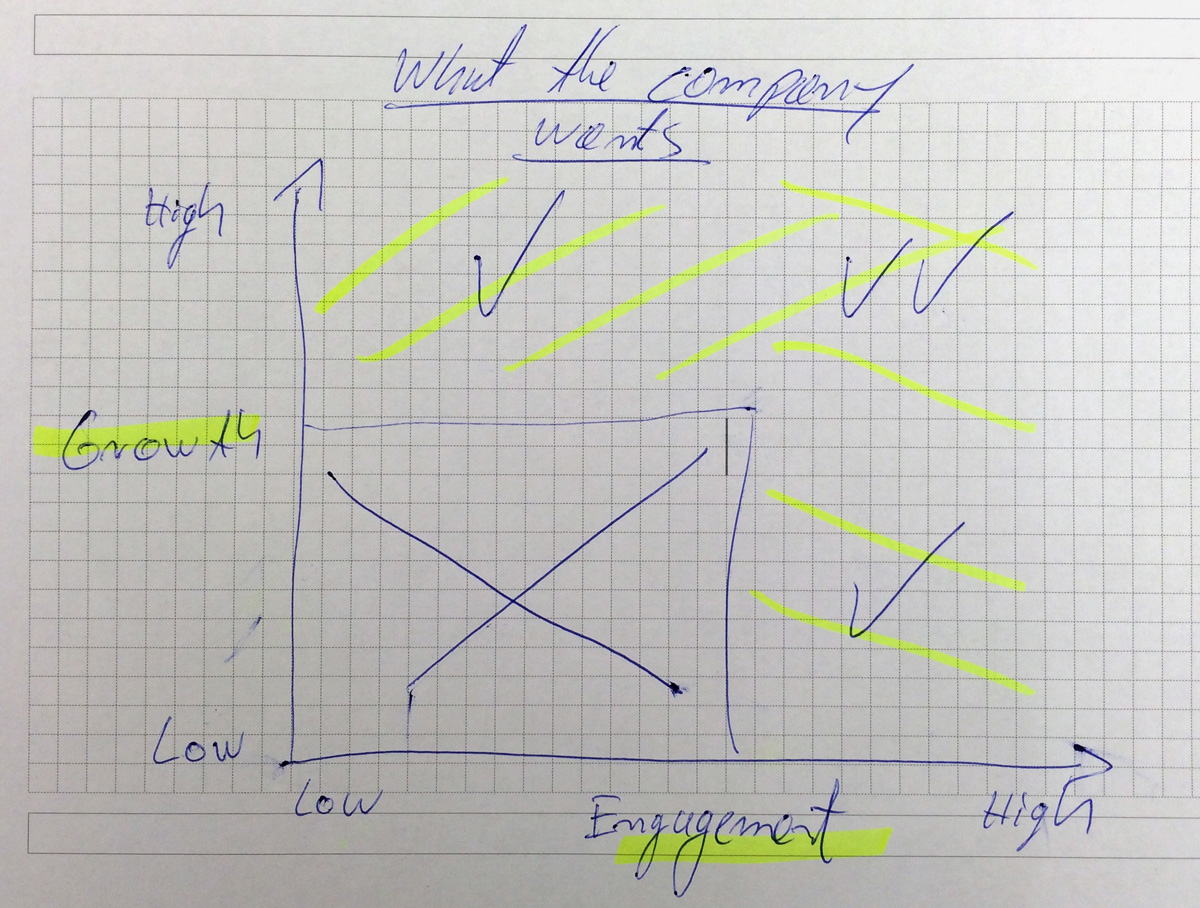 What the company
wants
High
Growth
Low
Low
Engagement
High